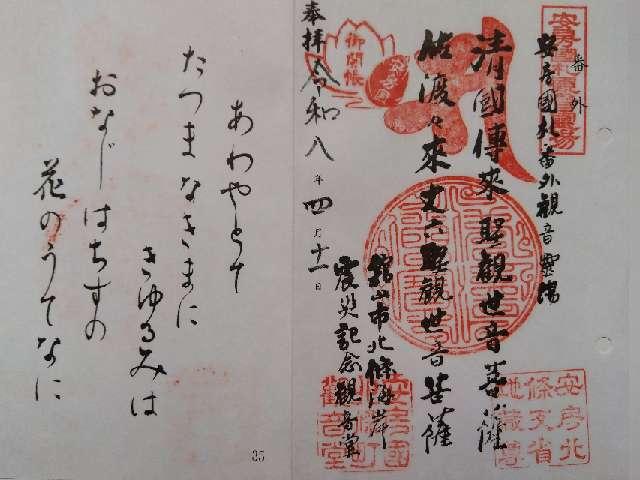 安房國札番外觀音靈場
番外
清國傳來 聖觀世音菩薩
佐渡々來 丈六聖觀世音菩薩
館山市北條海岸
震災記念觀音堂
奉拝 令和八年四月十一日
御開帳
安房北
條文省
地蔵尊
安房國
觀音堂
あわやとて
たつまなきまに
きゆるみは
おなじはちすの
花のうてなに
35